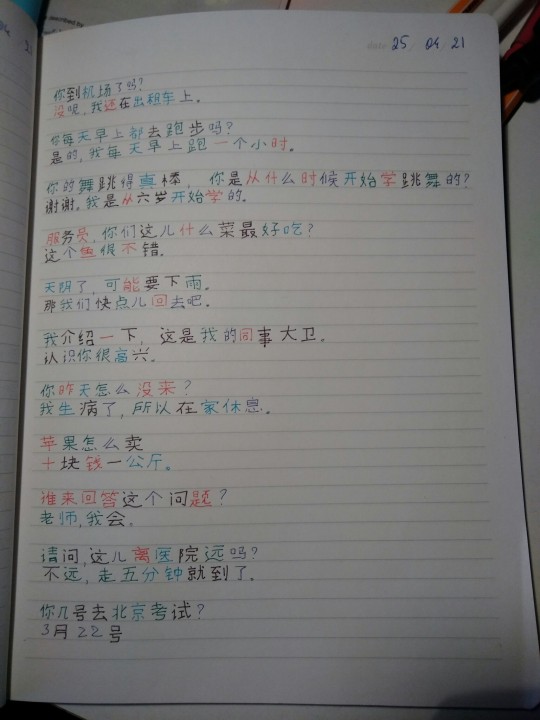 25 04 21
你到机场了吗?
没呢,我还在出租车上。
你每天早上都去跑步吗?
是的,我每天早上跑一个小时。
你的舞跳得真棒,你是从什么时候开始学跳舞的?
谢谢。我是从六岁开始学的。
服务员,你们这儿什么菜最好吃?
这个鱼很不错。
天阴了,可能要下雨。
那我们快点儿回去吧。
我介绍一下,这是我的同事大卫。
认识你很高兴。
你昨天怎么没来?
我生病了,所以在家休息。
苹果怎么卖
十块钱一公斤。
谁来回答这个问题?
老师,我会。
请问,这儿离医院远吗?
不远,走五分钟就到了。
你几号去北京考试?
3月22号